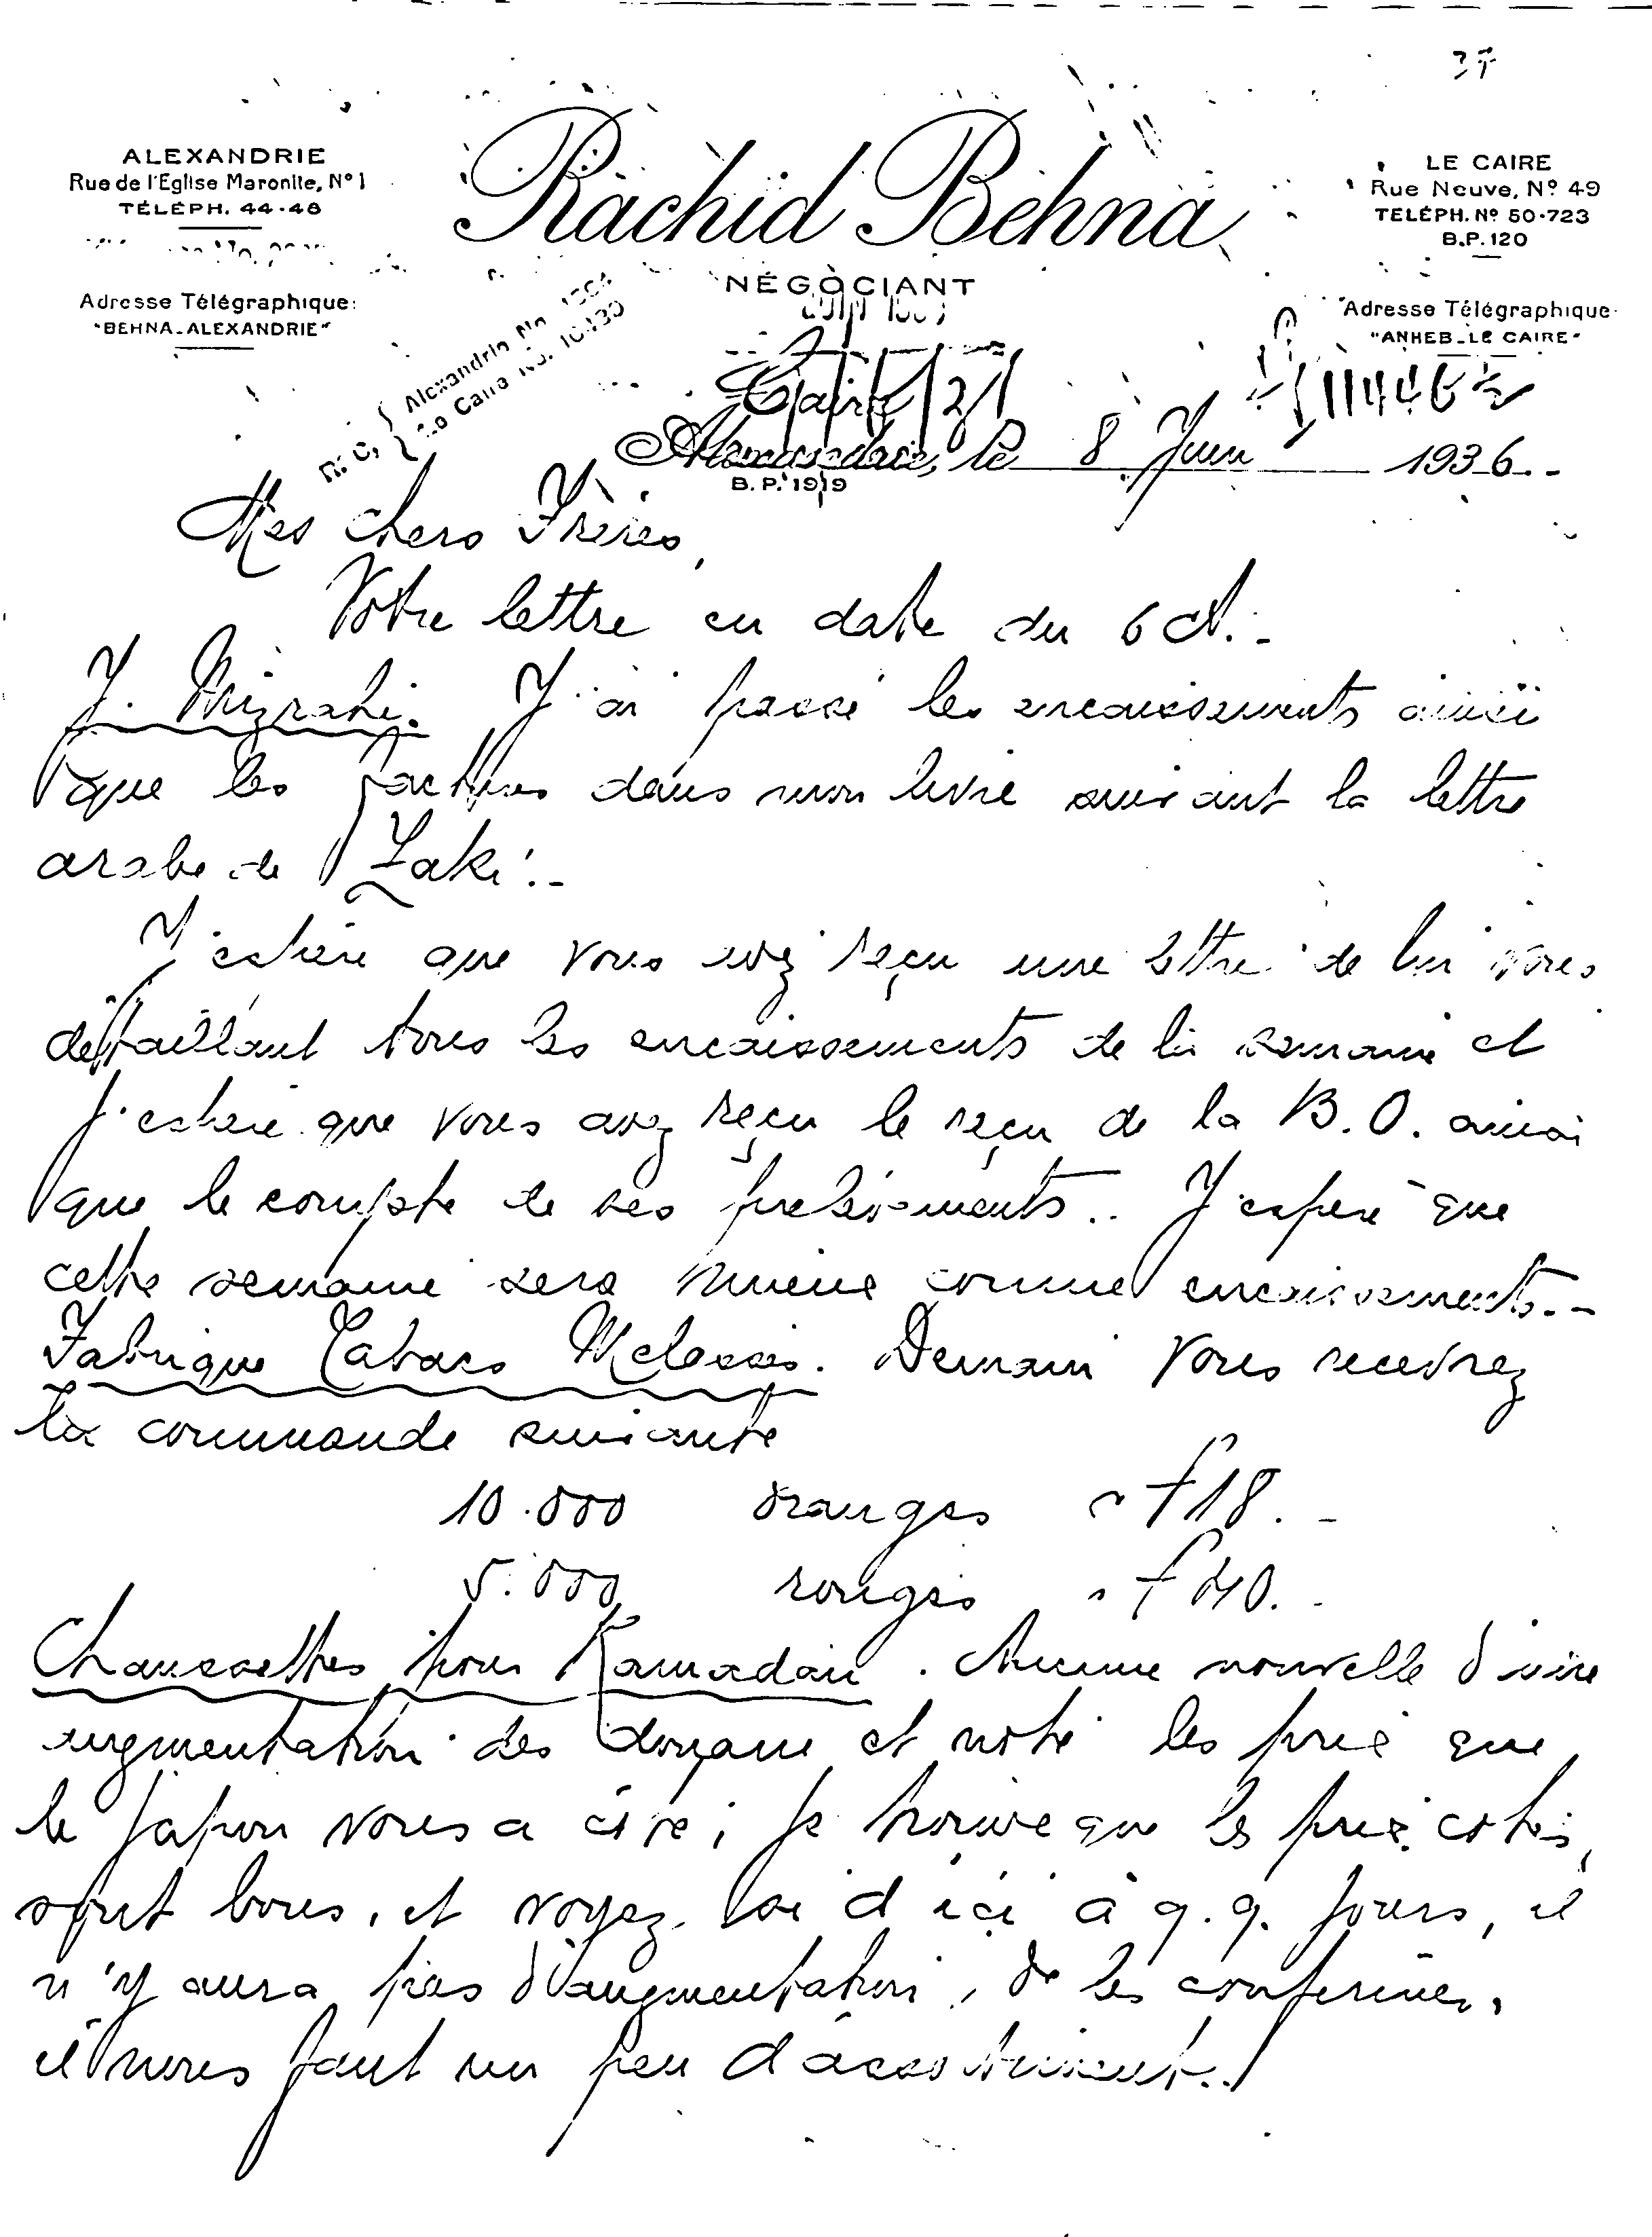 37
ALEXANDRIE
Rue de l'Eglise Maronite, Nº 1
TÉLÉPH. 44-48
Adresse Télégraphique:
"BEHNA-ALEXANDRIE"
Rachid Behna
NÉGOCIANT
LE CAIRE
Rue Neuve, Nº 49
TELÉPH. Nº 50-723
B.P. 120
Adresse Télégraphique
"ANHEB-LE CAIRE"
R. C. Alexandrie No.
Le Caire No.
Caire
Alexandrie, le 8 Juin 1936.-
B. P. 1919
Mes chers Frères,
Votre lettre en date du 6 ct.-
J. Mizrahi. J'ai passé les encaissements ainsi
que les factures dans mon livre suivant la lettre
arabe de Zaki.-
J'espère que vous avez reçu une lettre de lui vous
détaillant tous les encaissements de la semaine et
j'espère que vous avez reçu le reçu de la B.O. ainsi
que le compte de ses prelèvements.. J'espère que
cette semaine sera mieux comme encaissements.-
Fabrique Tabacs Melassés. Demain vous recevrez
la commande suivante
10.000 oranges a £18.-
5.000 rouges a £40.-
Chaussettes pour Ramadan. Aucune nouvelle d'une
augmentation des douane et noté les prix que
le Japon vous a coté; je trouve que les prix cotés,
sont bons, et voyez si d'ici à q.q. jours, il
n'y aura pas d'augmentation, de les confirmer,
il nous faut un peu d'assortiment..